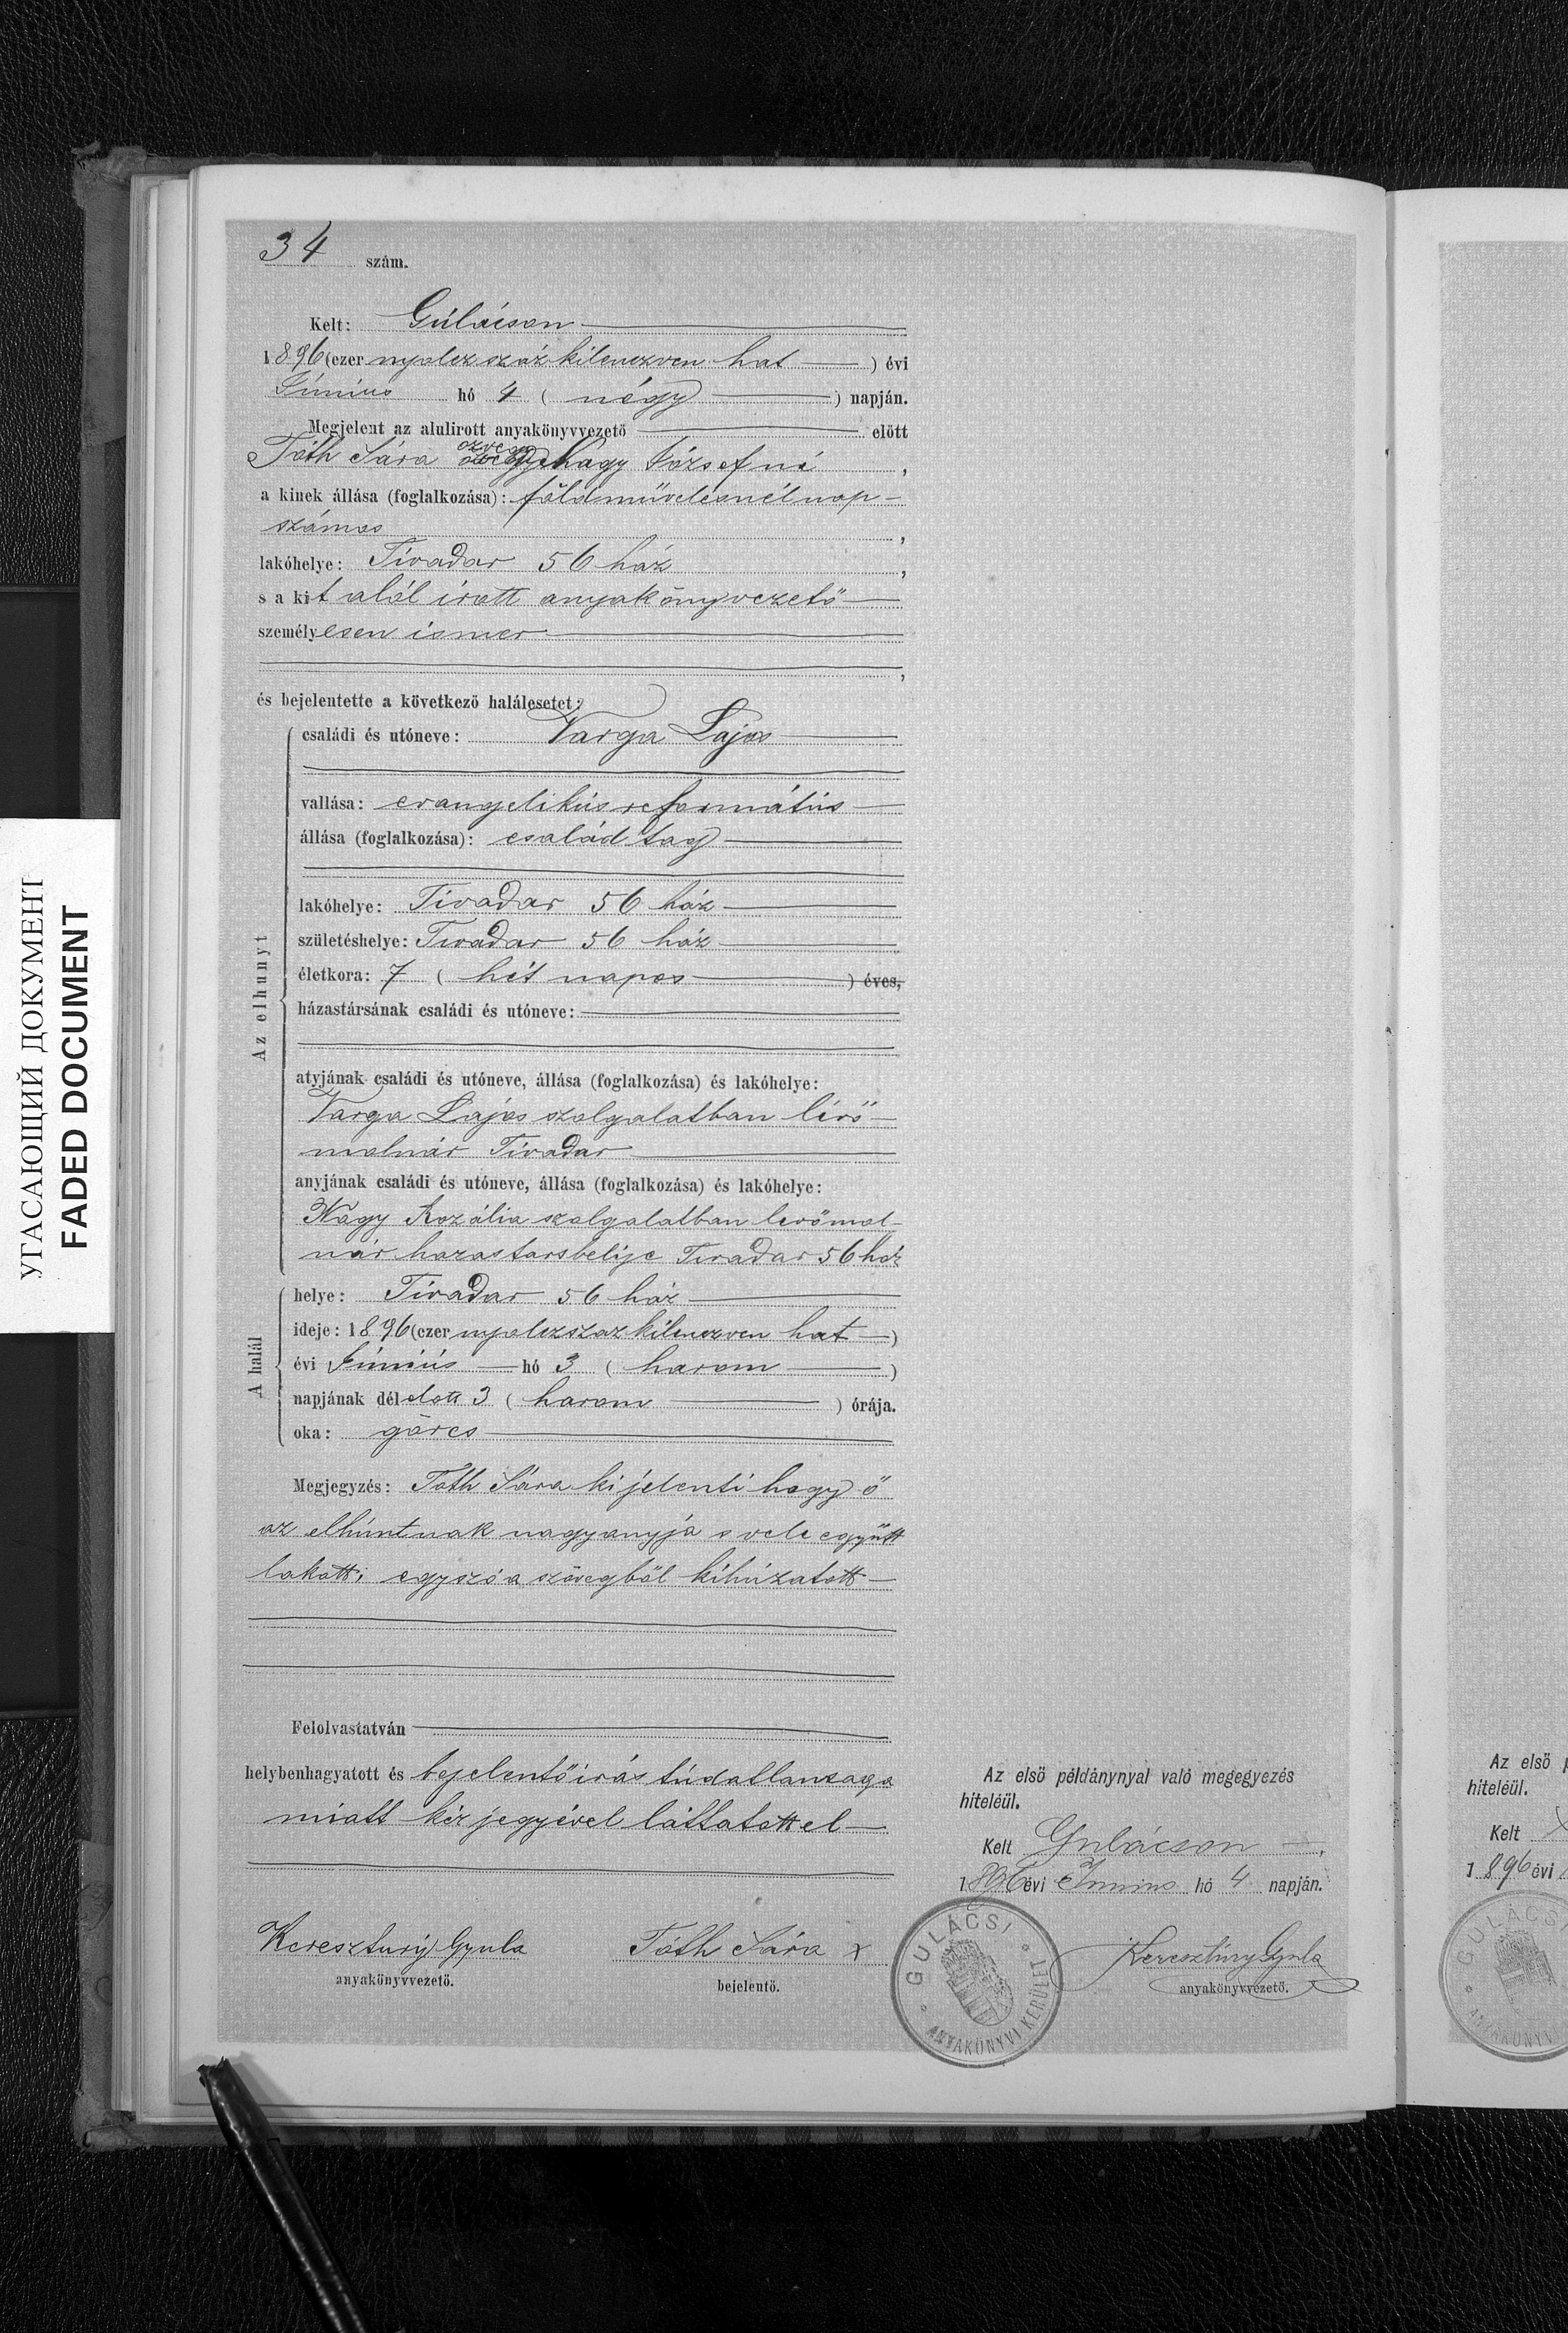 34 szám.
Kelt: Gúlácson
1896 (ezer nyolcz száz kilenczven hat ) évi
Június hó 4 ( négy ) napján.
Megjelent az alulirott anyakönyvvezető előtt
Tóth Sára özvegy Nagy Józsefné ,
a kinek állása (foglalkozása): földmüvelésnél nap-
számos ,
lakóhelye: Tivadar 56 ház ,
s a kit alól irott anyakönyvezetö
személyesen ismer
,
és bejelentette a következő halálesetet:
Az elhunyt
családi és utóneve: Varga Lajos
vallása: evangelikús református
állása (foglalkozása): család tag
lakóhelye: Tivadar 56 ház
születéshelye: Tivadar 56 ház
életkora: 7 ( hét napos ) éves,
házastársának családi és utóneve:
atyjának családi és utóneve, állása (foglalkozása) és lakóhelye:
Varga Lajos szolgalatban lévö
molnár Tivadar
anyjának családi és utóneve, állása (foglalkozása) és lakóhelye:
Nagy Rozália szolgalatban levömol-
nár hazastarsbelije Tivadar 56 ház
A halál
helye: Tivadar 56 ház
ideje: 1896 (ezer nyolczszaz kilenczven hat )
évi Június hó 3 ( harom )
napjának délelott 3 ( harom ) órája.
oka: görcs
Megjegyzés: Tóth Sára kijelenti hogy ö
az elhúntnak nagyanyja s vele együtt
lakott; egy szó a szövegböl kihúzatott
Felolvastatván
helybenhagyatott és bejelentő irás túdatlansaga
miatt kéz jegyével láttatott el
Keresztury Gyula
anyakönyvvezető.
Tóth Sára x
bejelentő.
Az első példánynyal való megegyezés
hiteléül.
Kelt Gulácson ,
1896 évi Junius hó 4 napján.
Keresztúry Gyula
anyakönyvvezető.
GULÁCSI
ANYAKÖNYVI KERÜLET
Az első
hiteléül.
Kelt
1896 évi
GULÁCSI
ANYAKÖNYVI
УГАСАЮЩИЙ ДОКУМЕНТ
FADED DOCUMENT